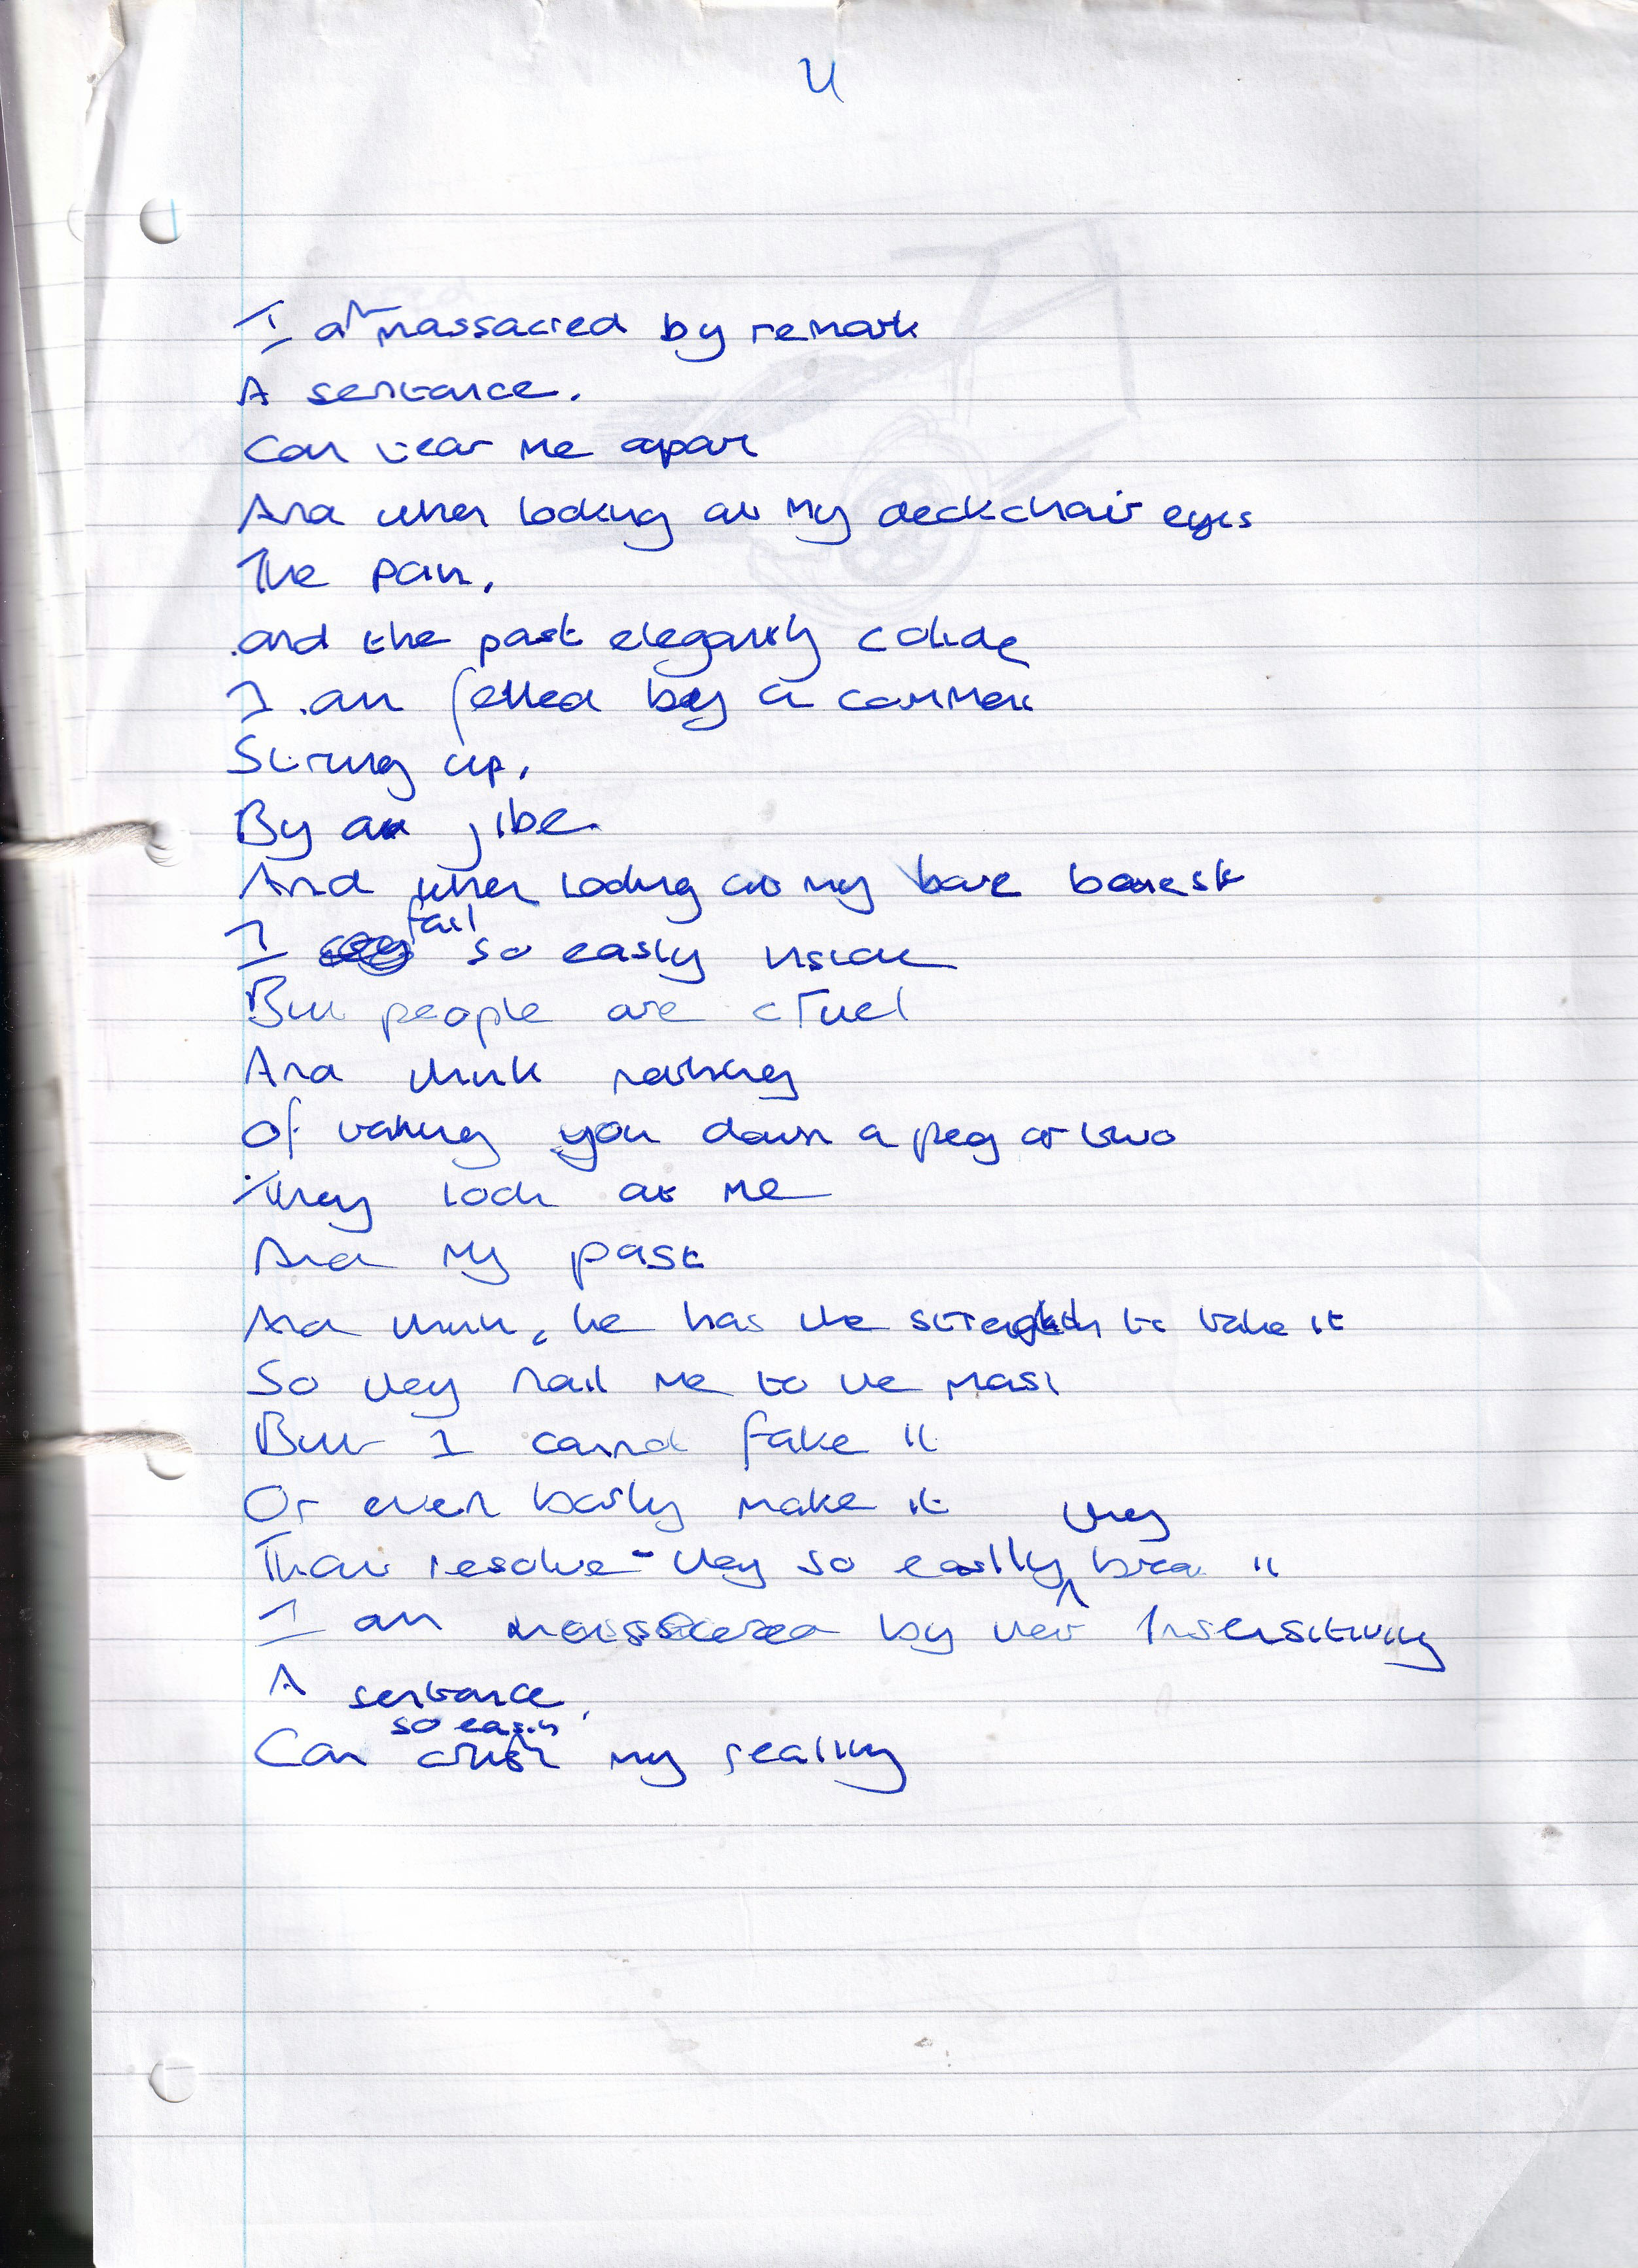 U
I am massacred by remark
A sentance.
Can tear me apart
And when looking at my deckchair eyes
The pain,
and the past elegantly colide
I am felled by a comment
Strung up,
By a jibe.
And when looking at my bare
I fail so easily inside
But people are cruel
And think nothing
Of taking you down a peg or two
They look at me
And my past
And think, he has the strength to take it
So they nail me to the mast
But I cannot fake it
Or even barly make it
Their resolve - they so easily they break it
I am massacred by their Insensitivity
A sentance,
Can so easily crush my reality